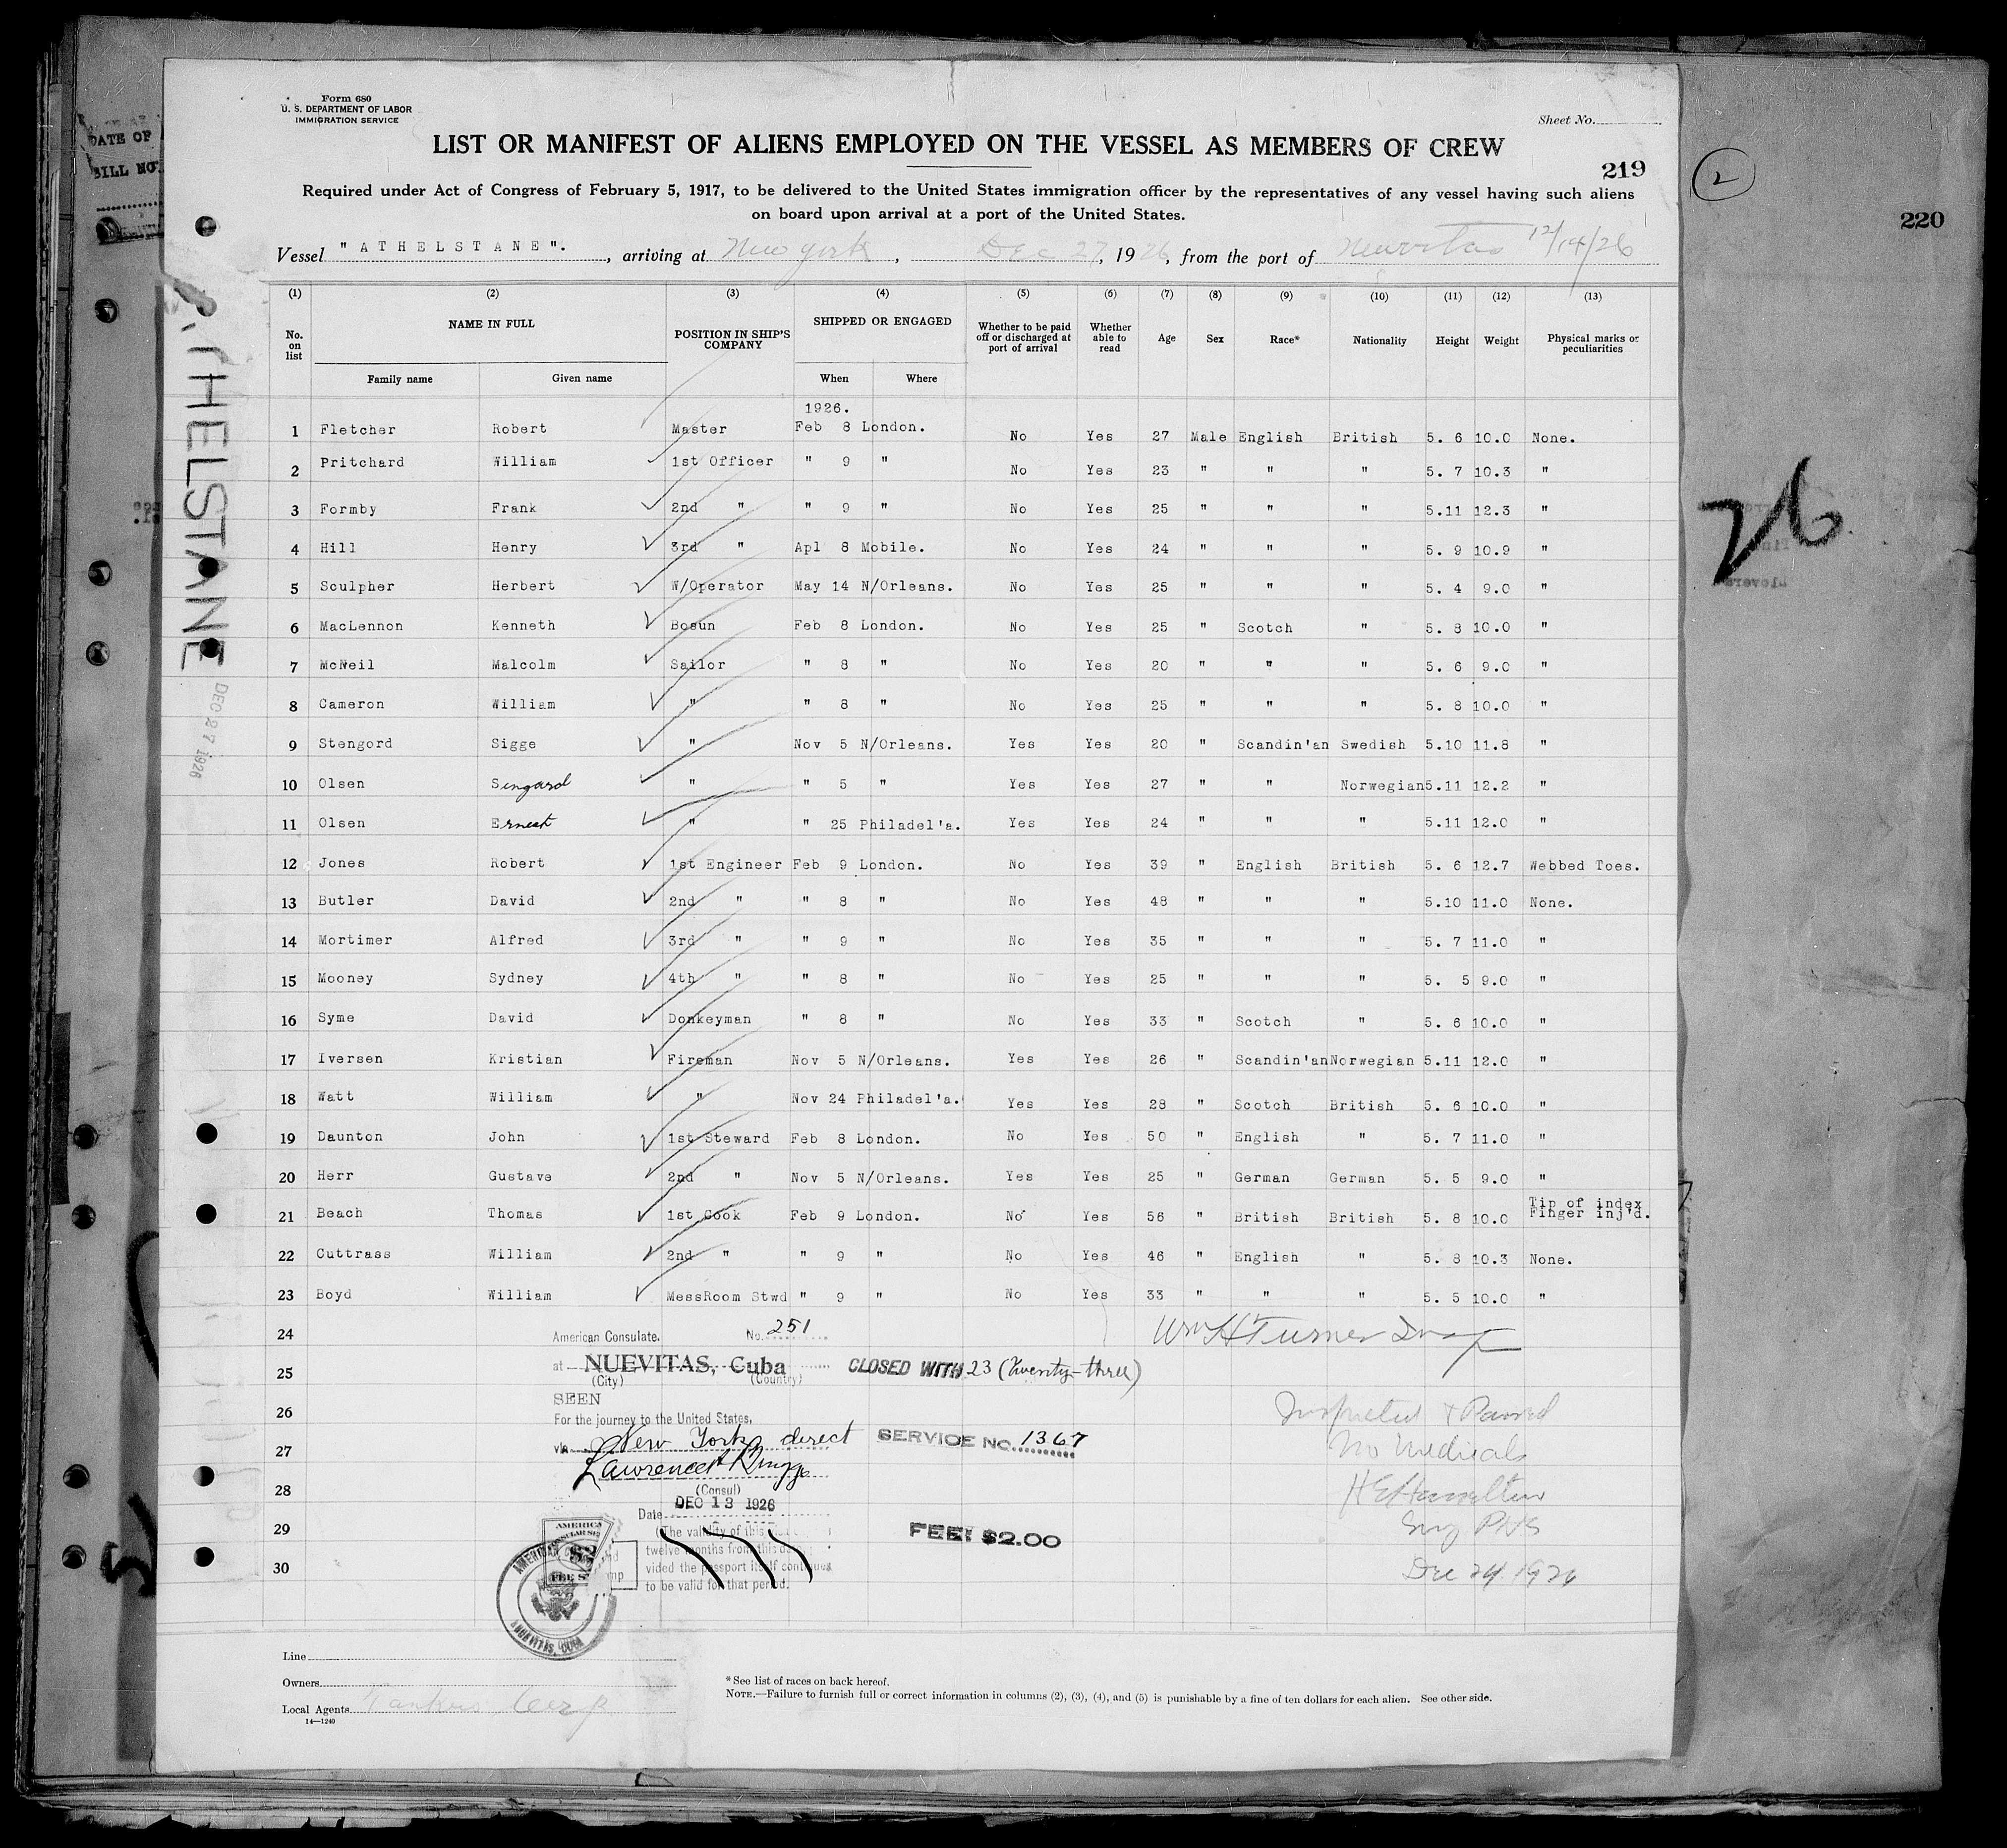 Form 680
U. S. DEPARTMENT OF LABOR
IMMIGRATION SERVICE
Sheet No.
LIST OR MANIFEST OF ALIENS EMPLOYED ON THE VESSEL AS MEMBERS OF CREW
219
220
2
26
DATE OF
BILL NO.
Required under Act of Congress of February 5, 1917, to be delivered to the United States immigration officer by the representatives of any vessel having such aliens
on board upon arrival at a port of the United States.
Vessel "ATHELSTANE"., arriving at New York, Dec 27, 1926, from the port of Nuevitas 12/14/26
ATHELSTANE
DEC 27 1926
(1) (2) (3) (4) (5) (6) (7) (8) (9) (10) (11) (12) (13)
No. on list NAME IN FULL POSITION IN SHIP'S COMPANY SHIPPED OR ENGAGED Whether to be paid off or discharged at port of arrival Whether able to read Age Sex Race* Nationality Height Weight Physical marks or peculiarities
Family name Given name When Where
1926.
1 Fletcher Robert Master Feb 8 London. No Yes 27 Male English British 5. 6 10.0 None.
2 Pritchard William 1st Officer " 9 " No Yes 23 " " " 5. 7 10.3 "
3 Formby Frank 2nd " " 9 " No Yes 25 " " " 5.11 12.3 "
4 Hill Henry 3rd " Apl 8 Mobile. No Yes 24 " " " 5. 9 10.9 "
5 Sculpher Herbert W/Operator May 14 N/Orleans. No Yes 25 " " " 5. 4 9.0 "
6 MacLennon Kenneth Bosun Feb 8 London. No Yes 25 " Scotch " 5. 8 10.0 "
7 McNeil Malcolm Sailor " 8 " No Yes 20 " " " 5. 6 9.0 "
8 Cameron William " " 8 " No Yes 25 " " " 5. 8 10.0 "
9 Stengord Sigge " Nov 5 N/Orleans. Yes Yes 20 " Scandin'an Swedish 5.10 11.8 "
10 Olsen Sengard " " 5 " Yes Yes 27 " " Norwegian 5.11 12.2 "
11 Olsen Ernest " " 25 Philadel'a. Yes Yes 24 " " " 5.11 12.0 "
12 Jones Robert 1st Engineer Feb 9 London. No Yes 39 " English British 5. 6 12.7 Webbed Toes.
13 Butler David 2nd " " 8 " No Yes 48 " " " 5.10 11.0 None.
14 Mortimer Alfred 3rd " " 9 " No Yes 35 " " " 5. 7 11.0 "
15 Mooney Sydney 4th " " 8 " No Yes 25 " " " 5. 5 9.0 "
16 Syme David Donkeyman " 8 " No Yes 33 " Scotch " 5. 6 10.0 "
17 Iversen Kristian Fireman Nov 5 N/Orleans. Yes Yes 26 " Scandin'an Norwegian 5.11 12.0 "
18 Watt William " Nov 24 Philadel'a. Yes Yes 28 " Scotch British 5. 6 10.0 "
19 Daunton John 1st Steward Feb 8 London. No Yes 50 " English " 5. 7 11.0 "
20 Herr Gustave 2nd " Nov 5 N/Orleans. Yes Yes 25 " German German 5. 5 9.0 "
21 Beach Thomas 1st Cook Feb 9 London. No Yes 56 " British British 5. 8 10.0 Tip of index Finger inj'd.
22 Cuttrass William 2nd " " 9 " No Yes 46 " English " 5. 8 10.3 None.
23 Boyd William MessRoom Stwd " 9 " No Yes 33 " " " 5. 5 10.0 "
24
25
26
27
28
29
30
Wm H Turner Insp
American Consulate. No. 251
at NUEVITAS, Cuba
(City) (Country)
CLOSED WITH 23 (Twenty-three)
SEEN
For the journey to the United States,
via New York direct
SERVICE NO. 1367
(Consul)
Date DEC 13 1926
(The validity of this
twelve months from this
vided the passport itself continues
to be valid for that period.
FEE: $2.00
AMERICAN
NUEVITAS, CUBA
Inspected & Passed
No Medicals
H E Hamilton
Surg PHS
Dec 24 1926
Line
Owners
Local Agents Tankers Corp
14—1240
* See list of races on back hereof.
NOTE.—Failure to furnish full or correct information in columns (2), (3), (4), and (5) is punishable by a fine of ten dollars for each alien. See other side.